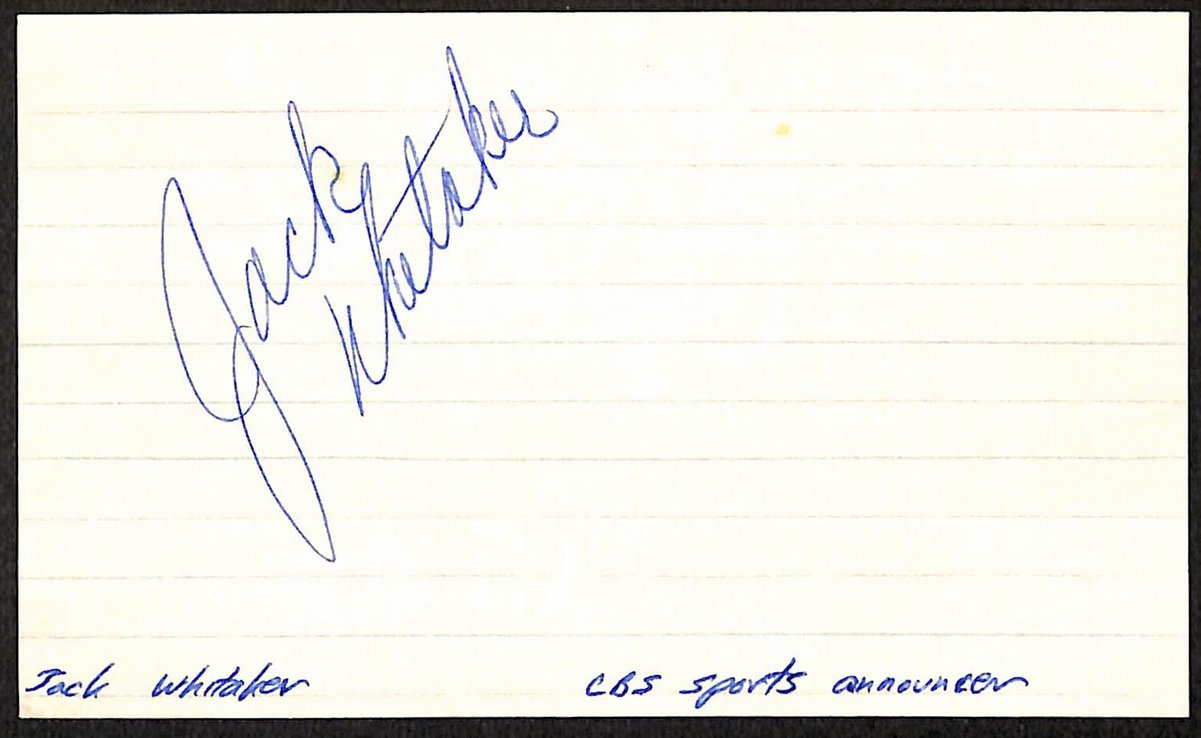 Jack
Whitaker
Jack Whitaker CBS sports announcer